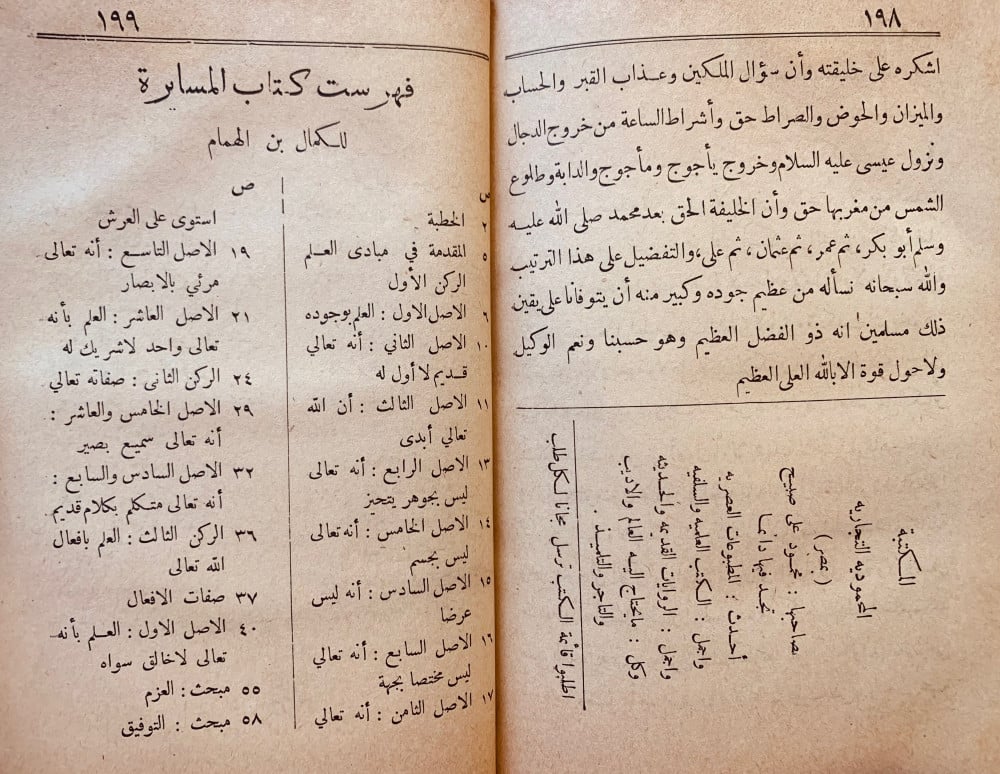 ١٩٨
اشكره على خليقته وأن سؤال الملكين وعذاب القبر والحساب
والميزان والحوض والصراط حق وأشراط الساعة من خروج الدجال
ونزول عيسى عليه السلام وخروج يأجوج ومأجوج والدابة وطلوع
الشمس من مغربها حق وأن الخليفة الحق بعد محمد صلى الله عليه
وسلم أبو بكر، ثم عمر، ثم عثمان، ثم على، والتفضيل على هذا الترتيب
والله سبحانه نسأله من عظيم جوده وكبير منه أن يتوفانا على يقين
ذلك مسلمين انه ذو الفضل العظيم وهو حسبنا ونعم الوكيل
ولا حول قوة الا بالله العلى العظيم
المكتبة
المحموديه التجاريه
( بمصر )
لصاحبها : محمود على صبيح
تجد فيها دائما
أحدث : المطبوعات العصريه
واجمل : الكتب العلميه والسلفيه
واجمل : الروايات القديمه والحديثه
وكل : ما يحتاج اليه العالم والاديب
والتاجر والتلميذ .
اطلبوا قائمة الكتب ترسل مجانا لكل طلب
١٩٩
فهرست كتاب المسايرة
للكمال بن الهمام
ص
٢ الخطبة
٥ المقدمة في مبادى العلم
الركن الأول
٦ الاصل الاول : العلم بوجوده
١٠ الاصل الثاني : أنه تعالي
قديم لا أول له
١١ الاصل الثالث : أن الله
تعالي أبدى
١٣ الاصل الرابع : أنه تعالى
ليس بجوهر يتحيز
١٤ الاصل الخامس : أنه تعالى
ليس بجسم
١٥ الاصل السادس : أنه ليس
عرضا
١٦ الاصل السابع : أنه تعالي
ليس مختصا بجهة
١٧ الاصل الثامن : أنه تعالي
ص
استوى على العرش
١٩ الاصل التاسع : أنه تعالى
مرئي بالابصار
٢١ الاصل العاشر : العلم بأنه
تعالى واحد لا شريك له
٢٤ الركن الثانى : صفاته تعالي
٢٩ الاصل الخامس والعاشر :
أنه تعالى سميع بصير
٣٢ الاصل السادس والسابع :
أنه تعالى متكلم بكلام قديم
٣٦ الركن الثالث : العلم بافعال
الله تعالى
٣٧ صفات الافعال
٤٠ الاصل الاول : العلم بأنه
تعالى لا خالق سواه
٥٥ مبحث : العزم
٥٨ مبحث : التوفيق